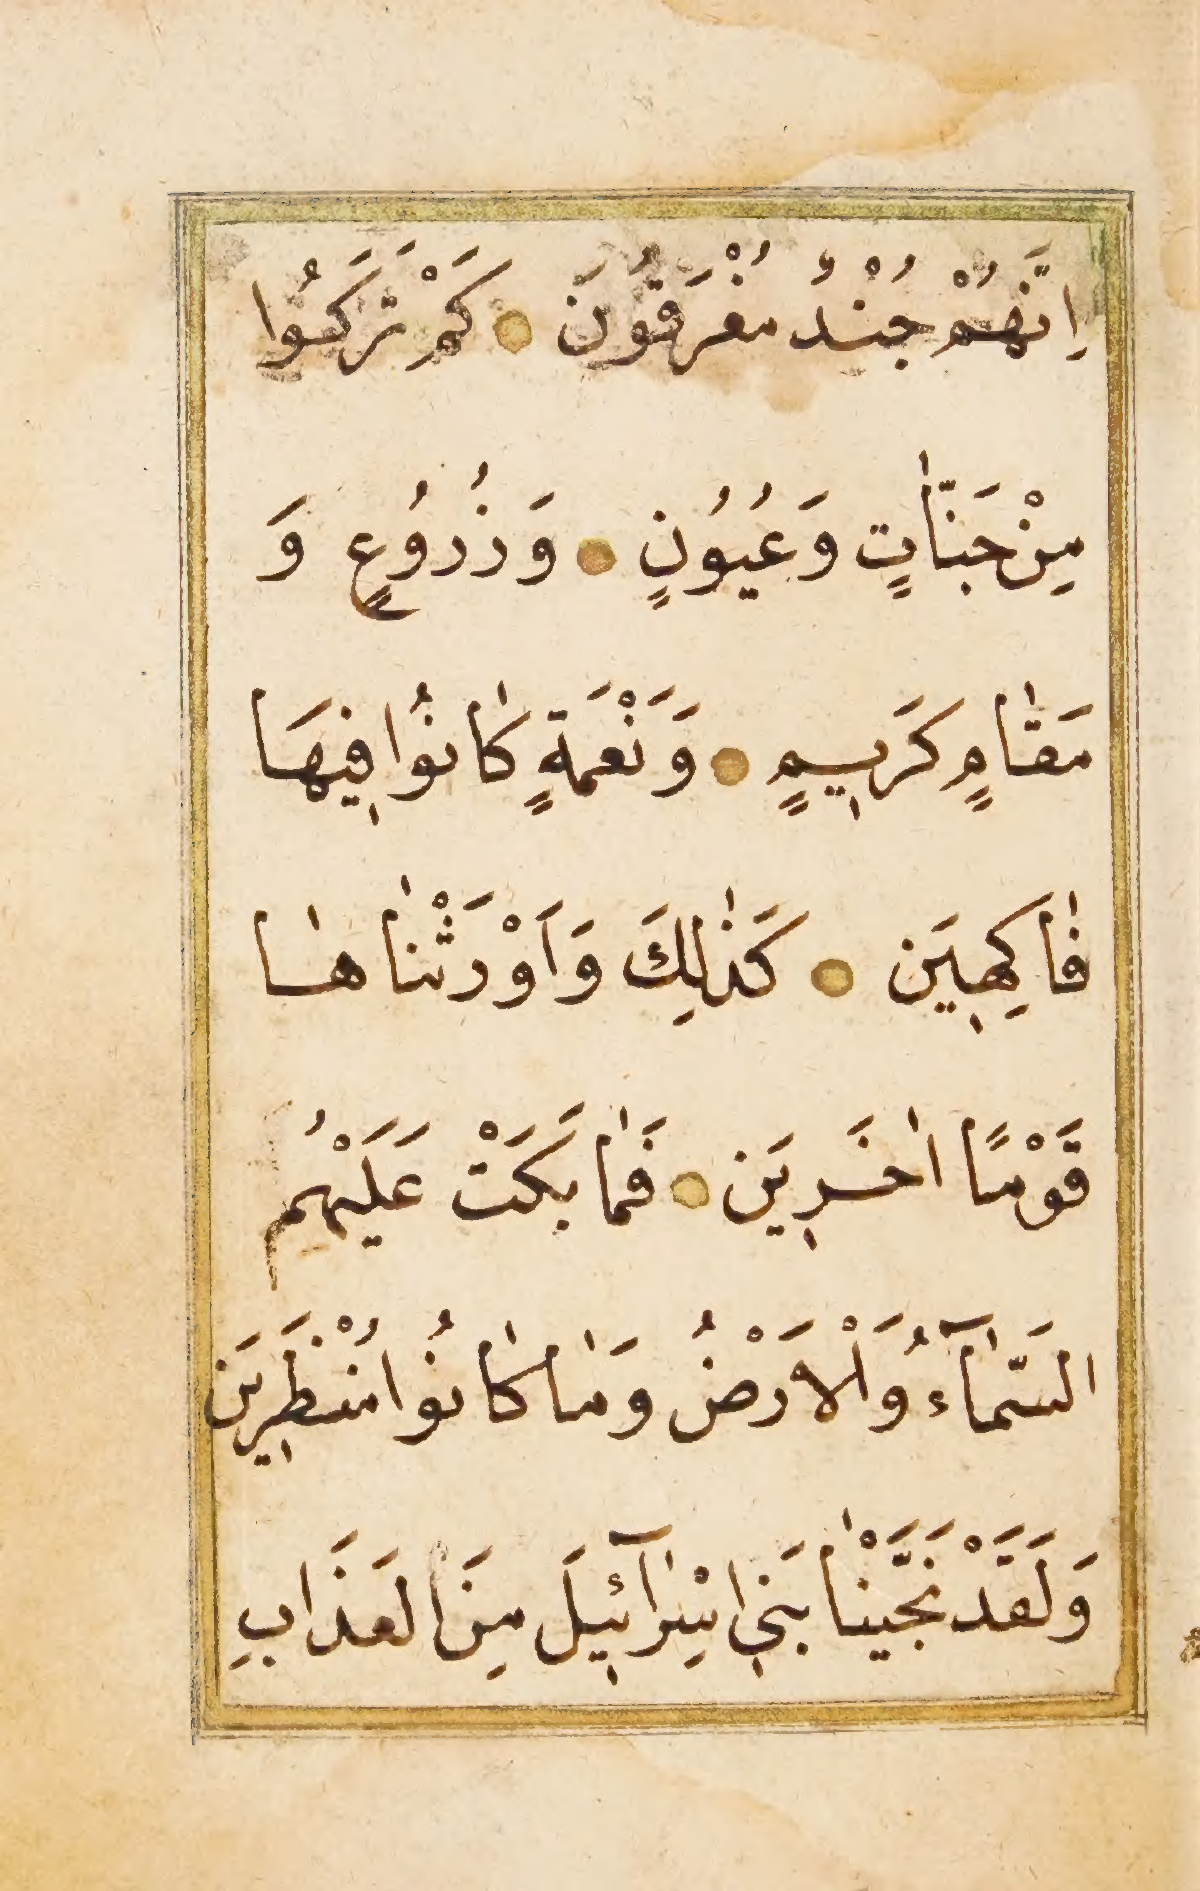 اِنَّهُمْ جُنْدٌ مُغْرَقُونَ ۝ كَمْ تَرَكُوا
مِنْ جَنّٰاتٍ وَعُيُونٍ ۝ وَزُرُوُعٍ وَ
مَقٰامٍ كَرِيمٍ ۝ وَنَعْمَةٍ كٰانُوا فِيهَا
فٰاكِهِينَ ۝ كَذٰلِكَ وَاَوْرَثْنٰا هٰا
قَوْمًا اٰخَرِينَ ۝ فَمٰا بَكَتْ عَلَيْهُم
السَّمٰآءُ وَالْاَرْضُ وَمٰا كٰانُوا مُنْظَرِينَ
وَلَقَدْ نَجَّيْنٰا بَنِى اِسْرٰآئِيلَ مِنَ الْعَذَابِ